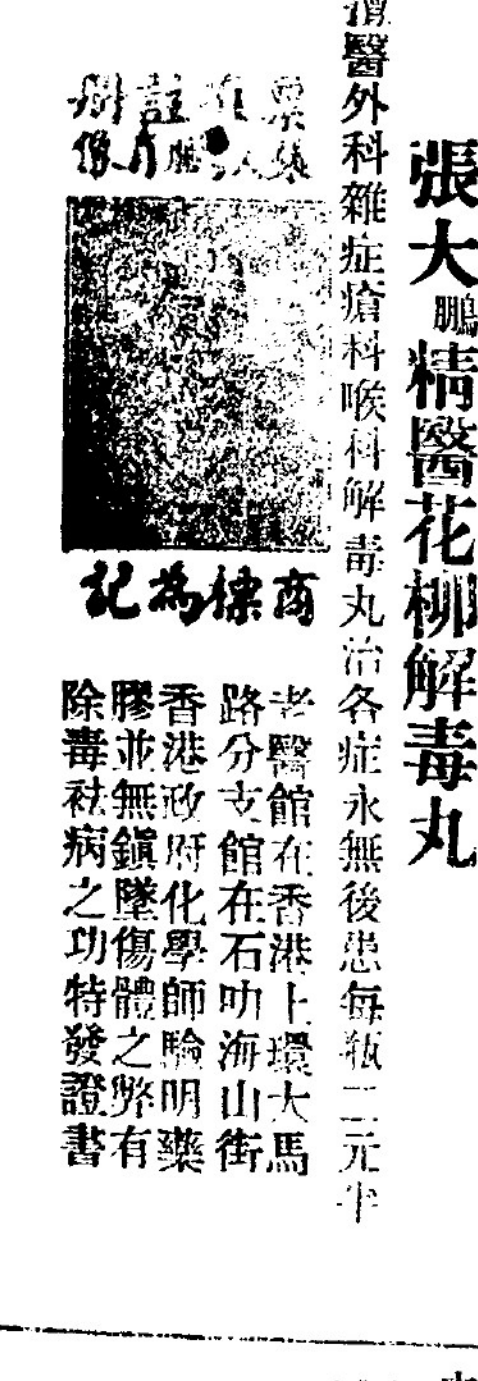 張大鵬精醫花柳解毒丸
醫外科雜症瘡科喉科解毒丸治各症永無後患每瓶二元半
註
像
商標為記
老醫館在香港上環大馬
路分支館在石叻海山街
香港政府化學師驗明藥
膠並無鎭墜傷體之弊有
除毒祛病之功特發證書